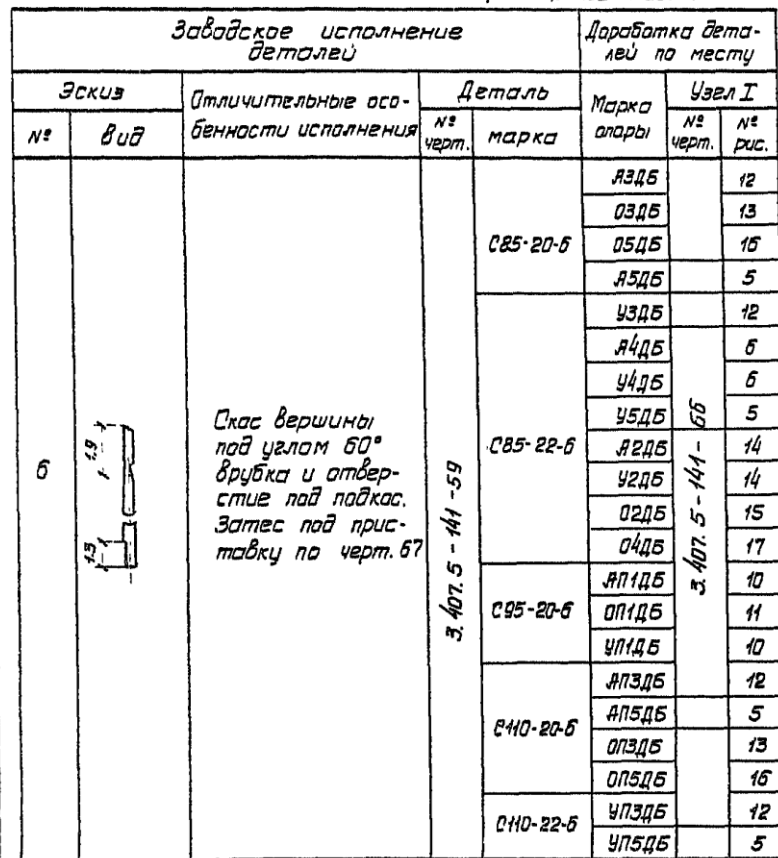 Заводское исполнение
деталей
Доработка дета-
лей по месту
Эскиз
Отличительные осо-
бенности исполнения
Деталь
Марка
опоры
Узел I
№
Вид
№
черт.
марка
№
черт.
№
рис.
6
1.9
1.3
Скос вершины
под углом 60°
врубка и отвер-
стие под подкос.
Затес под прис-
тавку по черт. 67
3.407.5-141-59
3.407.5-141-66
С85-20-6
А3ДБ 12
О3ДБ 13
О5ДБ 16
А5ДБ 5
С85-22-6
У3ДБ 12
А4ДБ 6
У4ДБ 6
У5ДБ 5
А2ДБ 14
У2ДБ 14
О2ДБ 15
О4ДБ 17
С95-20-6
АП1ДБ 10
ОП1ДБ 11
УП1ДБ 10
С110-20-6
АП3ДБ 12
АП5ДБ 5
ОП3ДБ 13
ОП5ДБ 16
С110-22-6
УП3ДБ 12
УП5ДБ 5